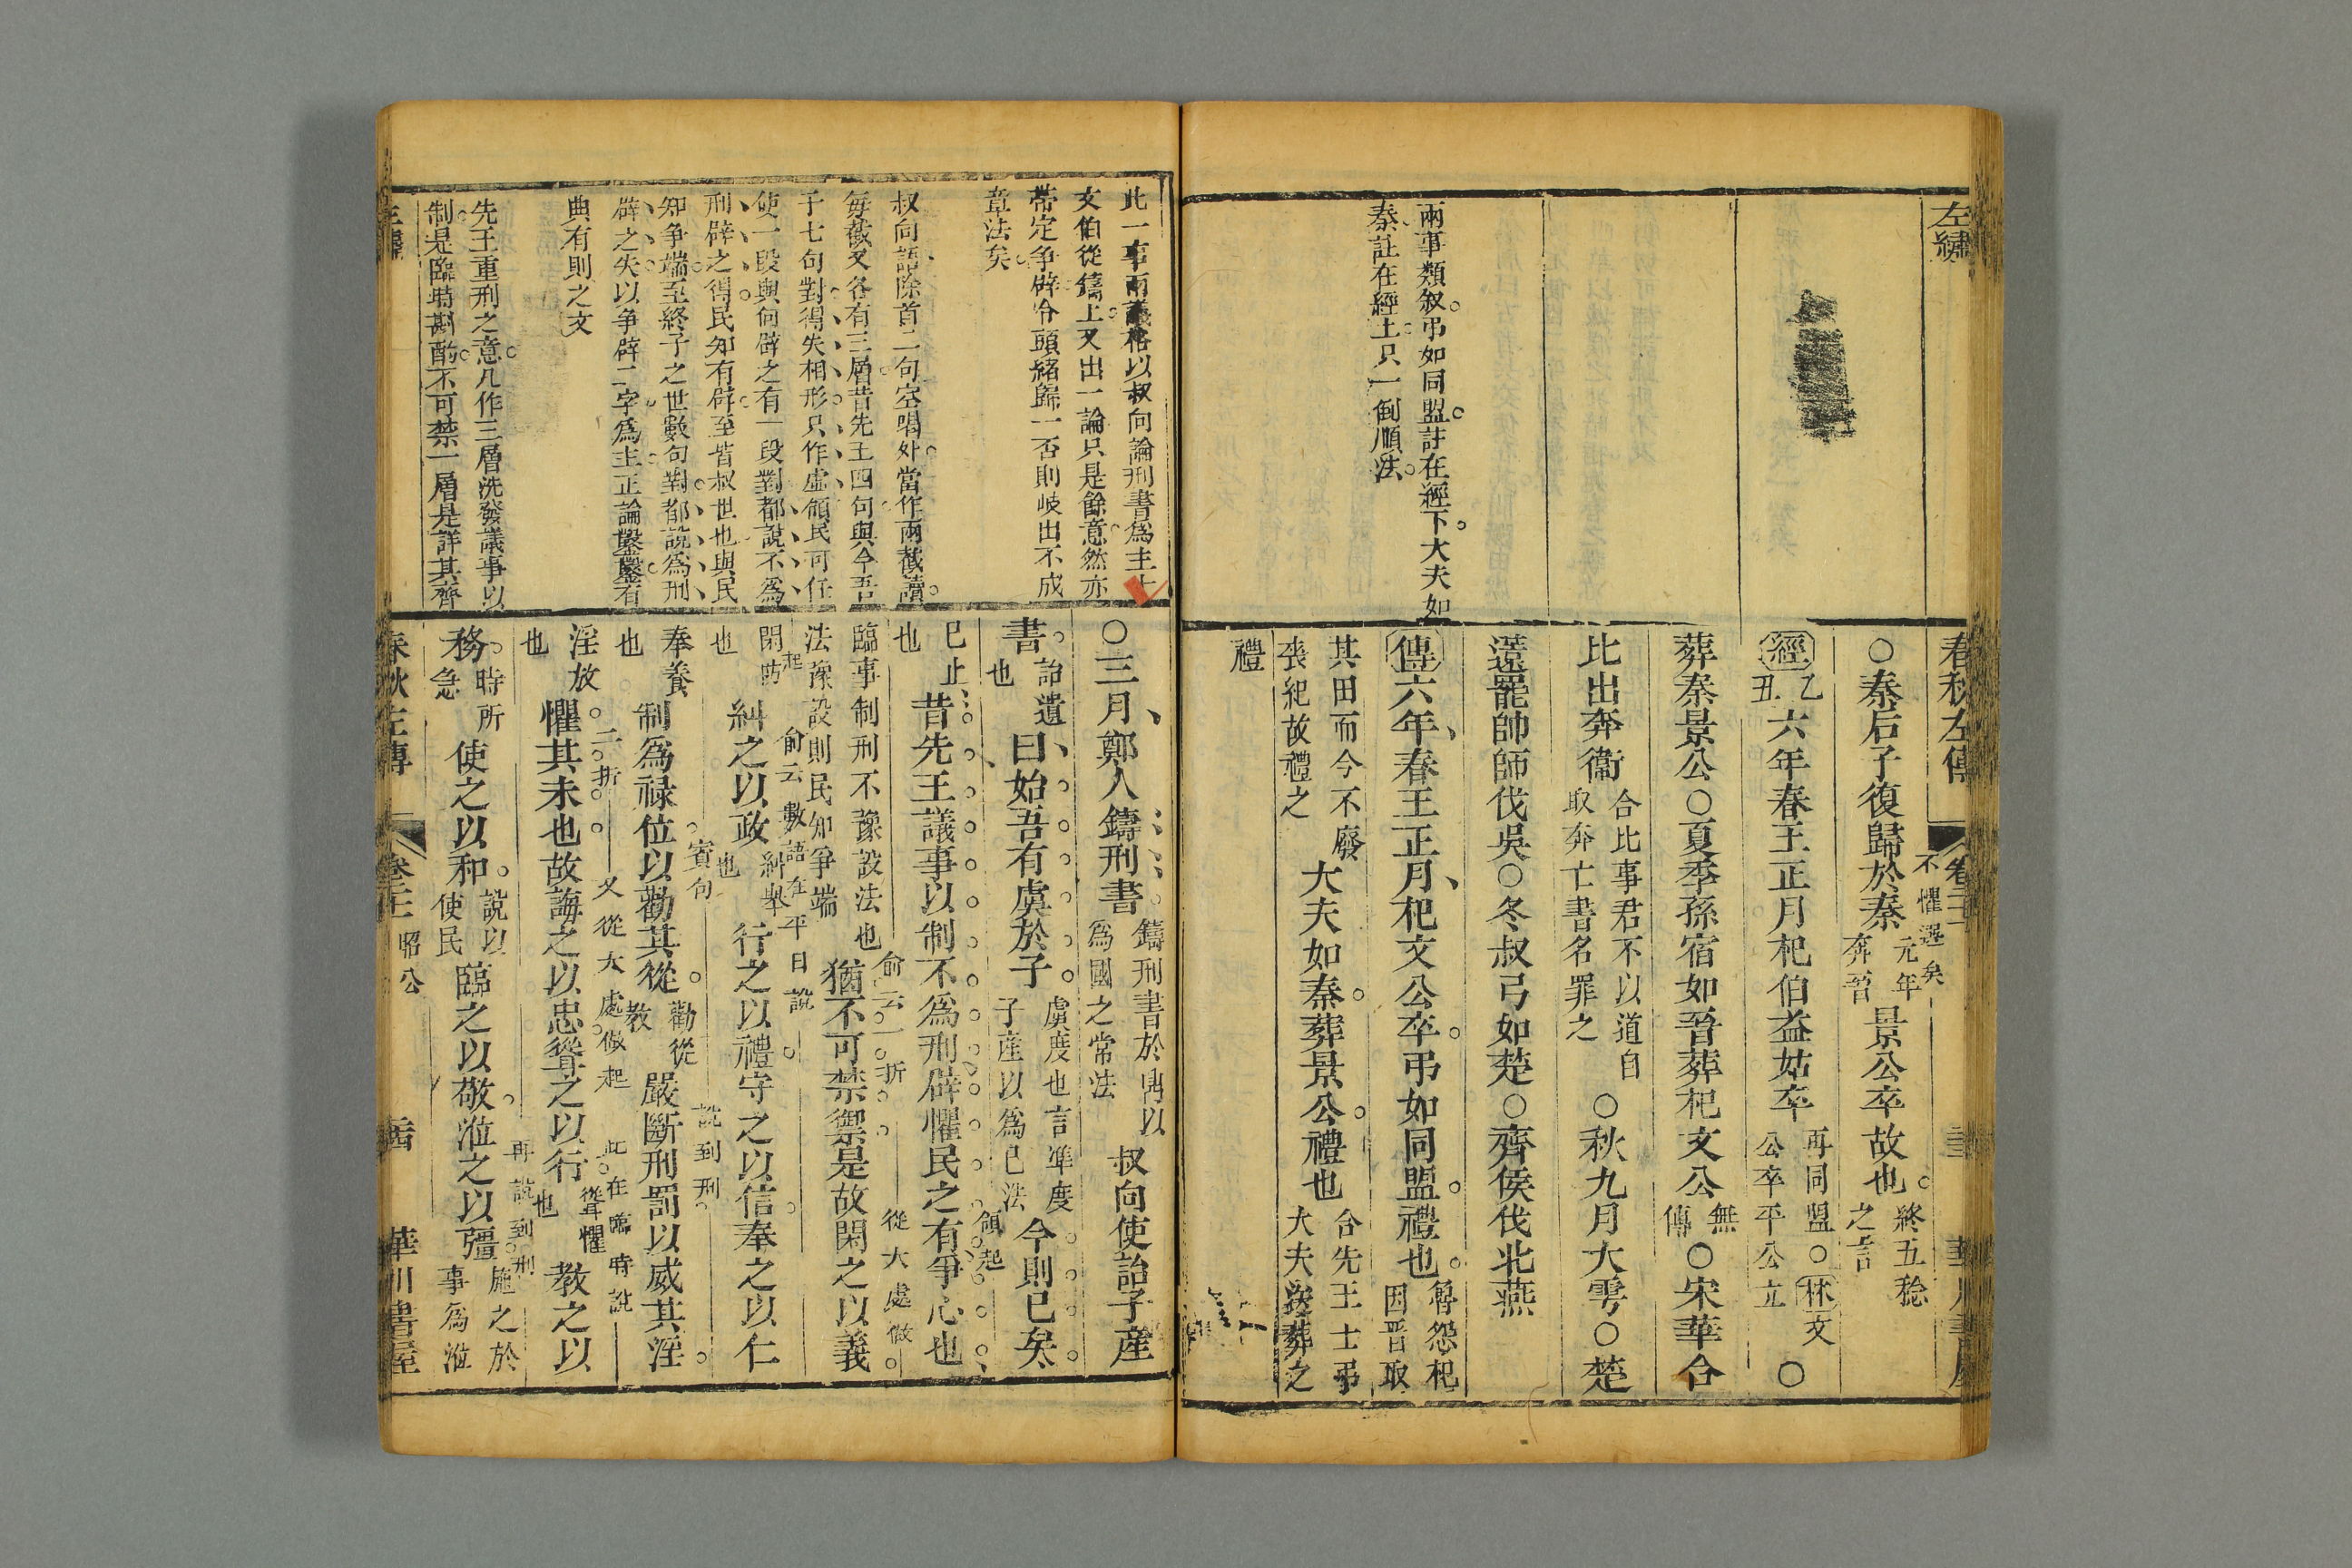 左繡
兩事類叙弔如同盟註在經下大夫如
秦註在經上只一倒順法
春秋左傳
不懼選矣
○秦后子復歸於秦
元年
奔晉
景公卒故也
終五稔
之言
經
乙
丑
六年春王正月杞伯益姑卒
再同盟○林文
公卒平公立
○
葬秦景公○夏季孫宿如晉葬杞文公
無
傳
○宋華合
比出奔衞
合比事君不以道自
取奔亡書名罪之
○秋九月大雩○楚
薳罷帥師伐吳○冬叔弓如楚○齊侯伐北燕
傳六年春王正月杞文公卒弔如同盟禮也
魯怨杞
因晉取
其田而今不廢
喪紀故禮之
大夫如秦葬景公禮也
合先王士弔
大夫送葬之
禮
此一事兩議格以叔向論刑書爲主士
文伯從鑄上又出一論只是餘意然亦
帶定争辟分頭緒歸一否則岐出不成
章法矣
叔向語除首二句空喝外當作兩截讀
每截又各有三層昔先王四句與今吾
子七句對得失相形只作虛領民可任
使一段與何辟之有一段對都說不爲
刑辟之得民知有辟至皆叔世也與民
知争端至終子之世數句對都說爲刑
辟之失以争辟二字爲主正論鑿鑿有
典有則之文
先王重刑之意凡作三層洗發議事以
制是臨時斟酌不可禁一層是詳其齊
○三月鄭人鑄刑書
鑄刑書於鼎以
爲國之常法
叔向使詒子產
書
詒遺
也
曰始吾有虞於子
虞度也言準度
子產以爲已法
今則已矣
已止
也
昔先王議事以制不爲刑辟懼民之有爭心也
領起
臨事制刑不豫設法也
法豫設則民知爭端
俞云一折
猶不可禁禦是故閑之以義
從大處做
起
閑防
也
糾之以政
糾舉
也
俞云數語在平日說
行之以禮守之以信奉之以仁
奉養
也
制爲禄位以勸其從
賓句
勸從
教
說到刑
嚴斷刑罰以威其淫
淫放
也
二折
懼其未也故誨之以忠聳之以行
又從大處做起
聳懼
也
此在臨時說
教之以
務
時所
急
使之以和
說以
使民
臨之以敬涖之以彊
再說到刑
施之於
事爲涖
春秋左傳
昭公
華川書屋